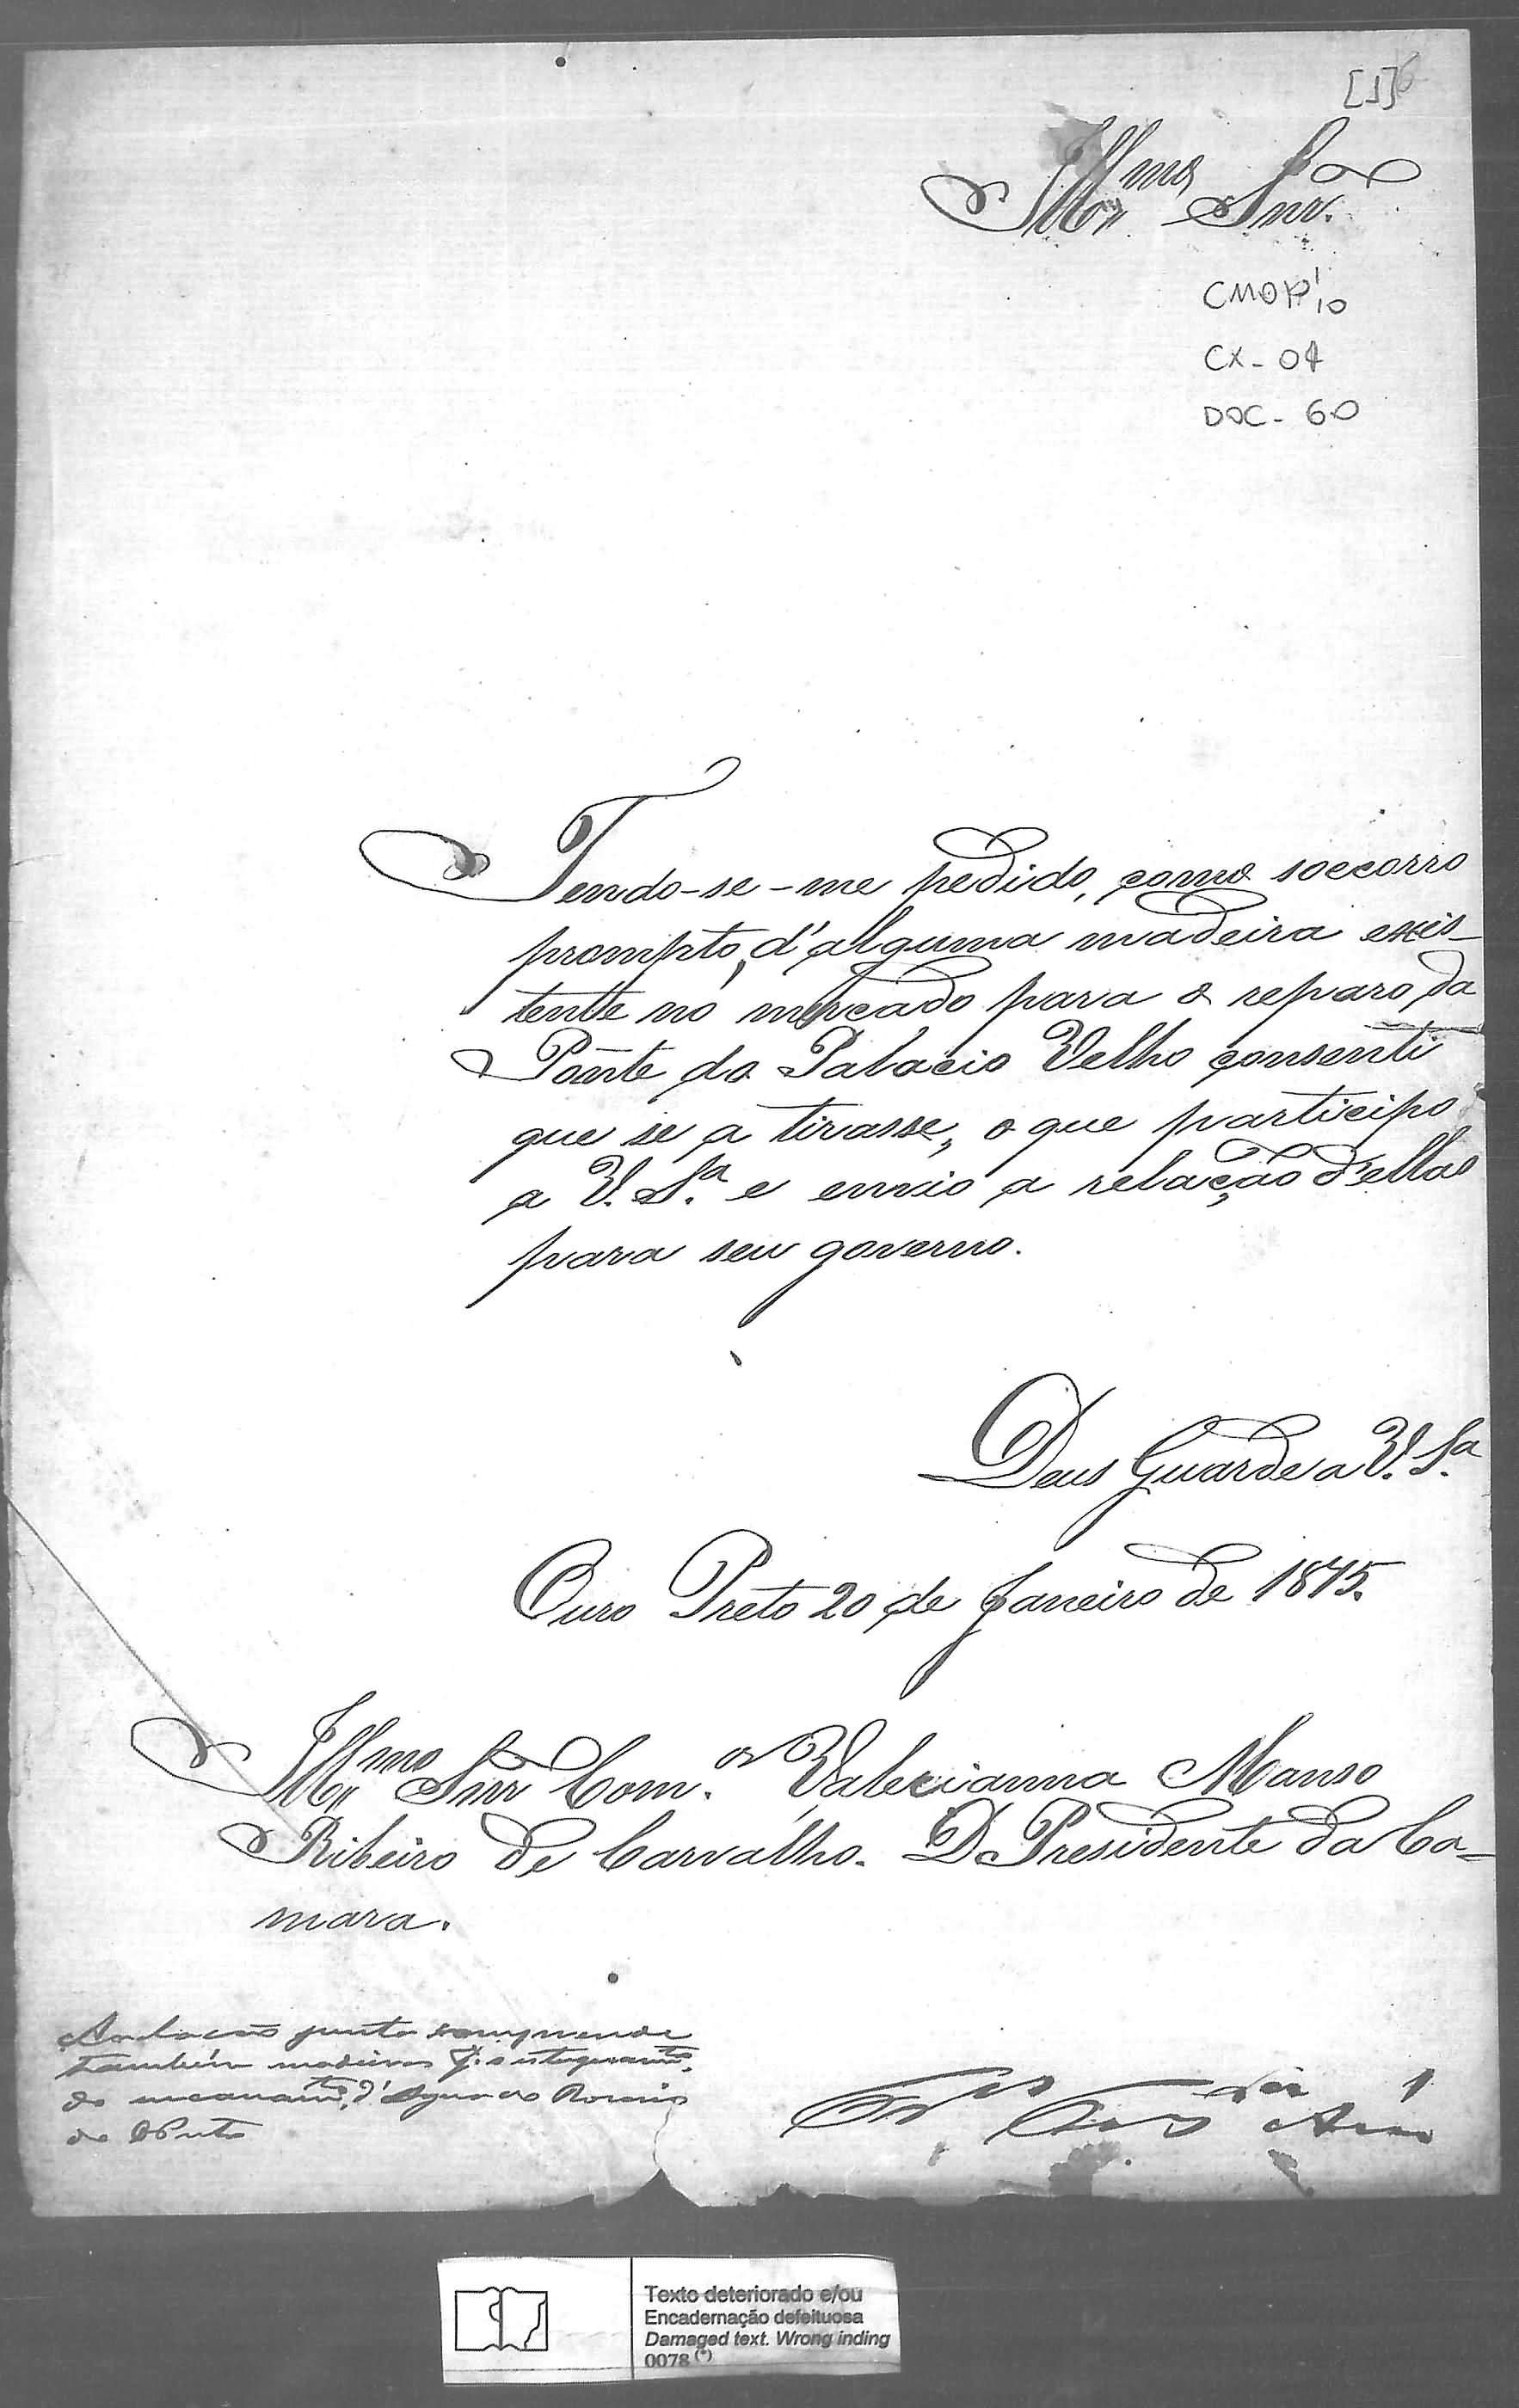 [1]
Illmo Snr.
CMOP 1/10
CX - 04
DOC - 60
Tendo-se-me pedido, como soccorro
prompto, d'alguma madeira exis-
tente no mercado para o reparo da
Ponte do Palacio Velho consenti
que se a tirasse, o que participo
a V. Sa. e envio a relação d'ellas
para seu governo.
Deus Guarde a V. Sa.
Ouro Preto 20 de Janeiro de 1875.
Illmo Snr Com.or Valerianna Manso
Ribeiro de Carvalho. D. Presidente da Ca-
mara.
junta comprende
também madeiras p.a
do encanamto. d'Agua do Rosario
Texto deteriorado e/ou
Encadernação defeituosa
Damaged text. Wrong inding
0078 (*)